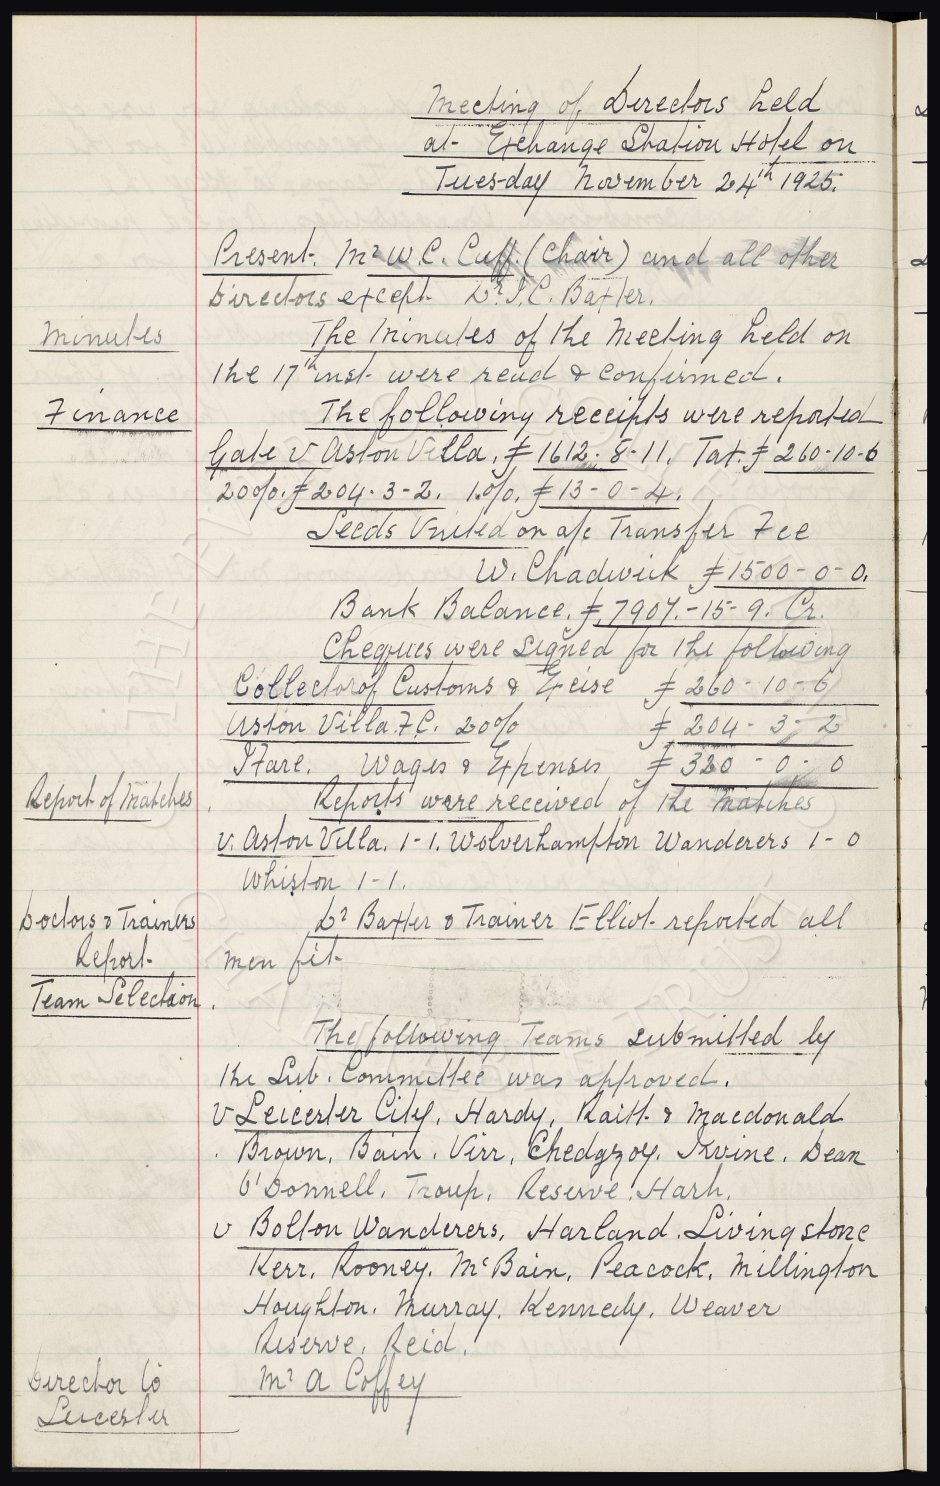 Meeting of Directors held
at Exchange Station Hotel on
Tuesday November 24th 1925.
Present. Mr W. C. Cuff. (Chair) and all other
Directors except Dr J. C. Baxter.
Minutes
The Minutes of the Meeting held on
the 17th inst were read & confirmed.
Finance
The following receipts were reported
Gate v Aston Villa. £1612-8-11. Tax. £260-10-6
20%. £204-3-2. 1.%. £13-0-4.
Leeds United on a/c Transfer Fee
W. Chadwick £1500-0-0.
Bank Balance. £7907.-15-9. Cr.
Cheques were signed for the following
Collector of Customs & Excise £260-10-6
Aston Villa F.C. 20% £204-3-2
H Hare. Wages & Expenses £320-0-0
Report of Matches
Reports were received of the matches
v. Aston Villa. 1-1. Wolverhampton Wanderers 1-0
Whiston 1-1.
Doctors & Trainers
Report
Dr Baxter & Trainer Elliot reported all
men fit
Team Selection.
The following Teams submitted by
the Sub. Committee was approved.
v Leicester City. Hardy, Raitt & Macdonald
Brown. Bain. Virr, Chedgzoy. Irvine. Dean
O'Donnell. Troup. Reserve. Hart.
v Bolton Wanderers, Harland. Livingstone
Kerr. Rooney. McBain, Peacock. Millington
Houghton. Murray. Kennedy. Weaver
Reserve. Reid.
Director to
Leicester
Mr A Coffey